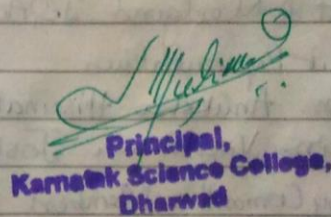 Principal,
Karnatak Science College,
Dharwad